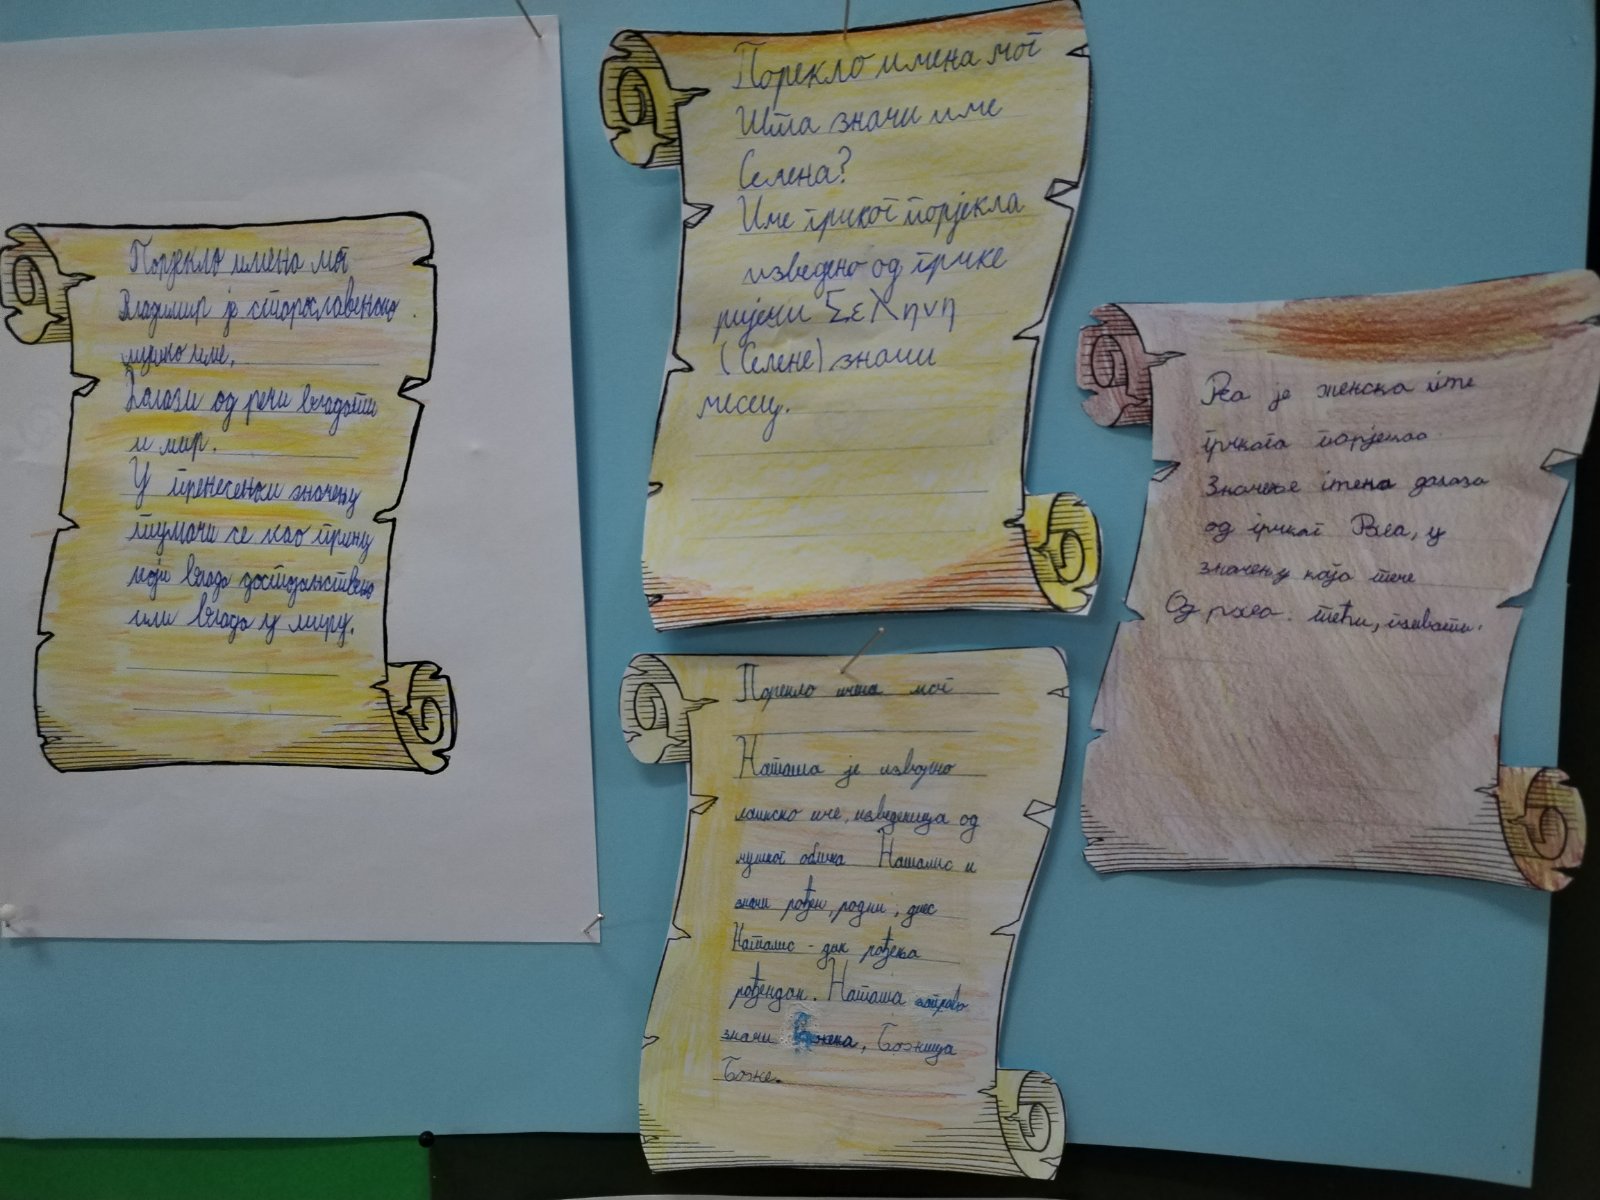 Порјекло имена мог
Владимир је старословенско
мушко име.
Долази од речи владати
и мир.
У пренесеном значењу
тумачи се као принц
који влада достојанствено
или влада у миру.
Порекло имена мог
Шта значи име
Селена?
Име грког порјекла
изведено од грчке
ријечи Σελήνη
(Селене) значи
месец.
Порекло имена мог
Наташа је изворно
латиско име, изведеница од
мушког облика Наталис и
значи рођен, родни, днес
Наталис - дан рођења
рођендан. Наташа заправо
значи Божена, Божица
Боже.
Реа је женска име
грчкога порјекла
Значење имена долази
од грчког Реа, у
значењу која тече
Од рхеа. тећи, пливати.